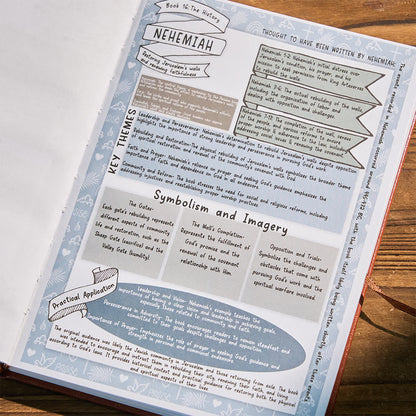 Book 16: The History
NEHEMIAH
Restoring Jerusalem's walls
and renewing faithfulness
THOUGHT TO HAVE BEEN WRITTEN BY NEHEMIAH
Nehemiah 1-2: Nehemiah's initial distress over
Jerusalem's condition, his prayer, and his
mission to seek permission from King Artaxerxes
to rebuild the walls.
Nehemiah 3-6: The actual rebuilding of the walls,
including the organization of labor and
dealing with opposition and challenges.
Nehemiah 7-13: The completion of the wall,
KEY THEMES
Leadership and Perseverance- Nehemiah's determination to rebuild Jerusalem's walls despite opposition
highlights the importance of strong leadership and perseverance in pursuing God's work.
Rebuilding and Restoration- The physical rebuilding of Jerusalem's walls symbolizes the broader theme
of spiritual restoration and renewal of the covenant relationship with God.
Faith and Prayer- Nehemiah's reliance on prayer and seeking God's guidance emphasizes the
importance of faith and dependence on God in all endeavors.
Community and Reform- The book stresses the need for social and religious reforms, including
addressing injustices and reestablishing proper worship practices.
Symbolism and Imagery
The Gates-
Each gate's rebuilding represents
different aspects of community
life and restoration, such as the
Sheep Gate (sacrifice) and the
Valley Gate (humility).
The Wall's Completion-
Represents the fulfillment of
God's promise and the
renewal of the covenant
relationship with Him.
Opposition and Trials-
Symbolize the challenges and
obstacles that come with
pursuing God's work and the
spiritual warfare involved
Practical Application
Leadership and Vision- Nehemiah's example teaches the
importance of having a clear vision and leadership in achieving goals,
especially those related to community and faith.
Perseverance in Adversity- The book encourages readers to remain steadfast and
committed to their goals despite challenges and opposition.
Importance of Prayer- Emphasizes the role of prayer in seeking God's guidance and
strength in personal and communal endeavors.
The original audience was likely the Jewish community in Jerusalem and those returning from exile. The book
was intended to encourage them in rebuilding their city, renewing their faith, and living
according to God's laws. It provides historical context and practical guidance for restoring both the physical
and spiritual aspects of their lives.